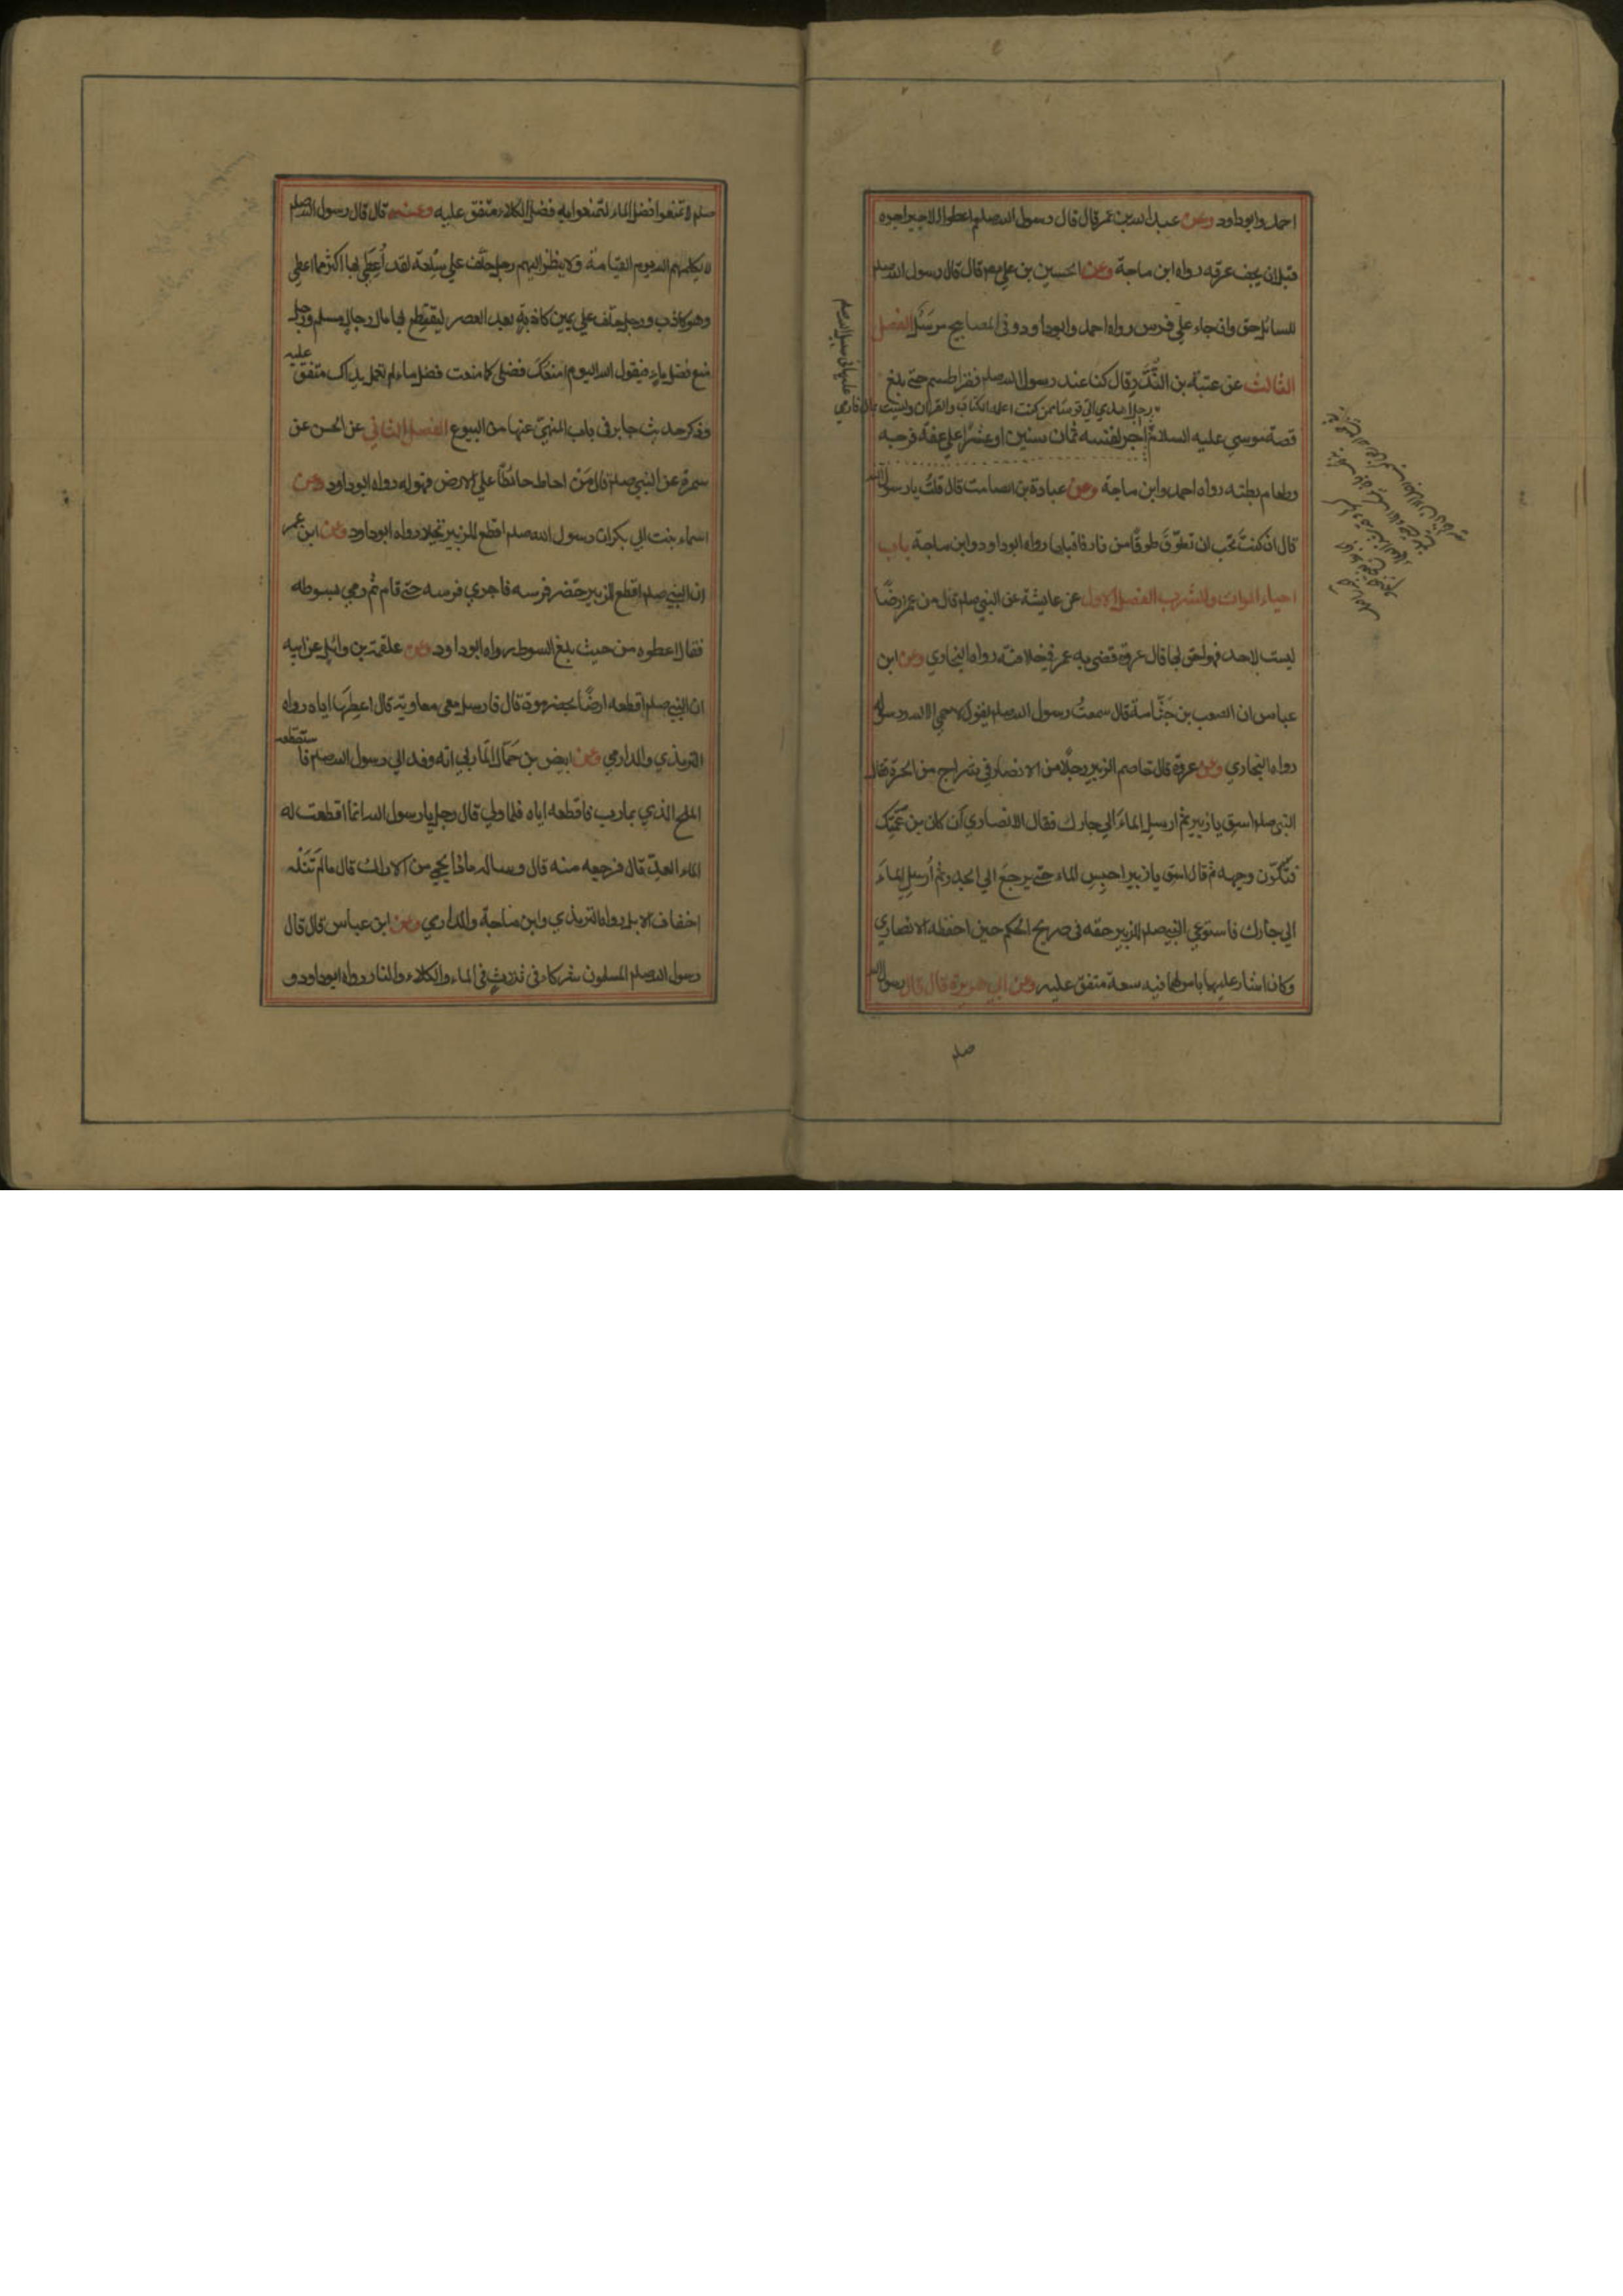 احمد وابوداود وعن عبد الله بن عمر قال قال رسول الله صلم اعطوا الاجير اجره
قبل ان يجف عرقه رواه ابن ماجة وعن الحسين بن علي رضم قال قال رسول الله صلم
للسائل حق وان جاء علي فرس رواه احمد وابوداود وفي المصابيح مرسَل الفصل
الثالث عن عتبة بن النُّدَّر قال كنا عند رسول الله صلم فقرا طسم حتى بلغ
رجل اهدي الي قوسا ممن كنت اعلمه الكتاب والقران وليست بمال فارمي
عليها في سبيل الله صلم
قصة موسي عليه السلام اجر نفسه ثمان سنين او عشرًا علي عفة فرجه
وطعام بطنه رواه احمد وابن ماجة وعن عبادة بن الصامت قال قلتُ يا رسول الله
قال ان كنتَ تحب ان تطوَّق طوقًا من نار فاقبلها رواه ابوداود وابن ماجة باب
احياء الموات والشرب الفصل الاول عن عايشة عن النبي صلم قال من عمر ارضًا
ليست لاحد فهو احق بها قال عروة قضي به عمر في خلافته رواه البخاري وعن ابن
عباس ان الصعب بن جَثّامة قال سمعتُ رسول الله صلم يقول لا حمي الا لله ورسوله
رواه البخاري وعن عروة قال خاصم الزبير رجلًا من الانصار في شراج من الحرة فقال
النبي صلم اسق يا زبير ثم ارسلِ الماءَ الي جارك فقال الانصاري اَن كان بن عَمَّتِك
فتلَوَّن وجهه ثم قال اسق يا زبير احبِسِ الماء حتى يرجعَ الي الجدر ثم اُرسلِ الماءَ
الي جارك فاستوعي النبي صلم للزبير حقه في صريح الحكم حين احفظه الانصاري
وكان اشار عليهما بامر لهما فيه سعة متفق عليه وعن ابي هريرة قال قال رسول الله
صلم
صلم لا تمنعوا فضل الماء لتمنعوا به فضل الكلاء متفق عليه وعنه قال قال رسول الله صلم
لا يكلمهم الله يوم القيامة ولا ينظر اليهم رجل حلَف علي سِلعة لقد اُعطِي بها اكثر مما اعطي
وهو كاذب ورجل حلف علي يمين كاذبةٍ بعد العصر ليقتطع بها مال رجل مسلم ورجل
منع فضل ماء فيقول الله اليوم امنعُكَ فضلي كما منعت فضل ماء لم تعمل يداك متفق عليه
وذكر حديث جابر في باب المنهيّ عنها من البيوع الفصل الثاني عن الحسن عن
سمرة عن النبي صلم قال مَن احاط حائطًا علي الارض فهو له رواه ابوداود وعن
اسماء بنت ابي بكر ان رسول الله صلم اقطع للزبير نخيلا رواه ابوداود وعن ابن عمر
ان النبي صلم اقطع للزبير حُضر فرسه فاجري فرسه حتى قام ثم رمي بسوطه
فقال اعطوه من حيث بلغ السوط رواه ابوداود وعن علقمة بن وائل عن ابيه
ان النبي صلم اقطعه ارضًا بحضرموت قال فارسل معي معاوية قال اعطِهَا اياه رواه
الترمذي والدارمي وعن ابيض بن حَمَّال المَأربي انه وفد الي رسول الله صلم فاستقطعه
الملح الذي بمارب فاقطعه اياه فلما ولي قال رجل يا رسول الله انما اقطعت له
الماء العِدّ قال فرجعه منه قال وساله ماذا يحمي من الاراك قال ما لَم تَنَله
اخفاف الابل رواه الترمذي وابن ماجة والدارمي وعن ابن عباس قال قال
رسول الله صلم المسلمون شركاء في ثلاث في الماء والكلاء والنار رواه ابوداود و